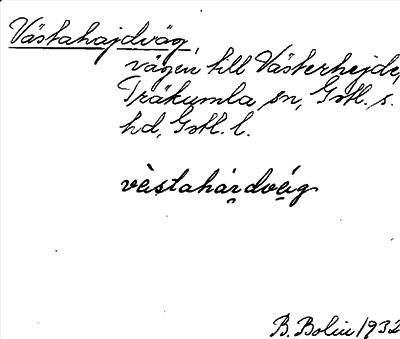 Västahajdväg,
vägen till Västerhejde,
Träkumla sn, Gotl. s.
hd, Gotl. l.
B. Bolin 1932